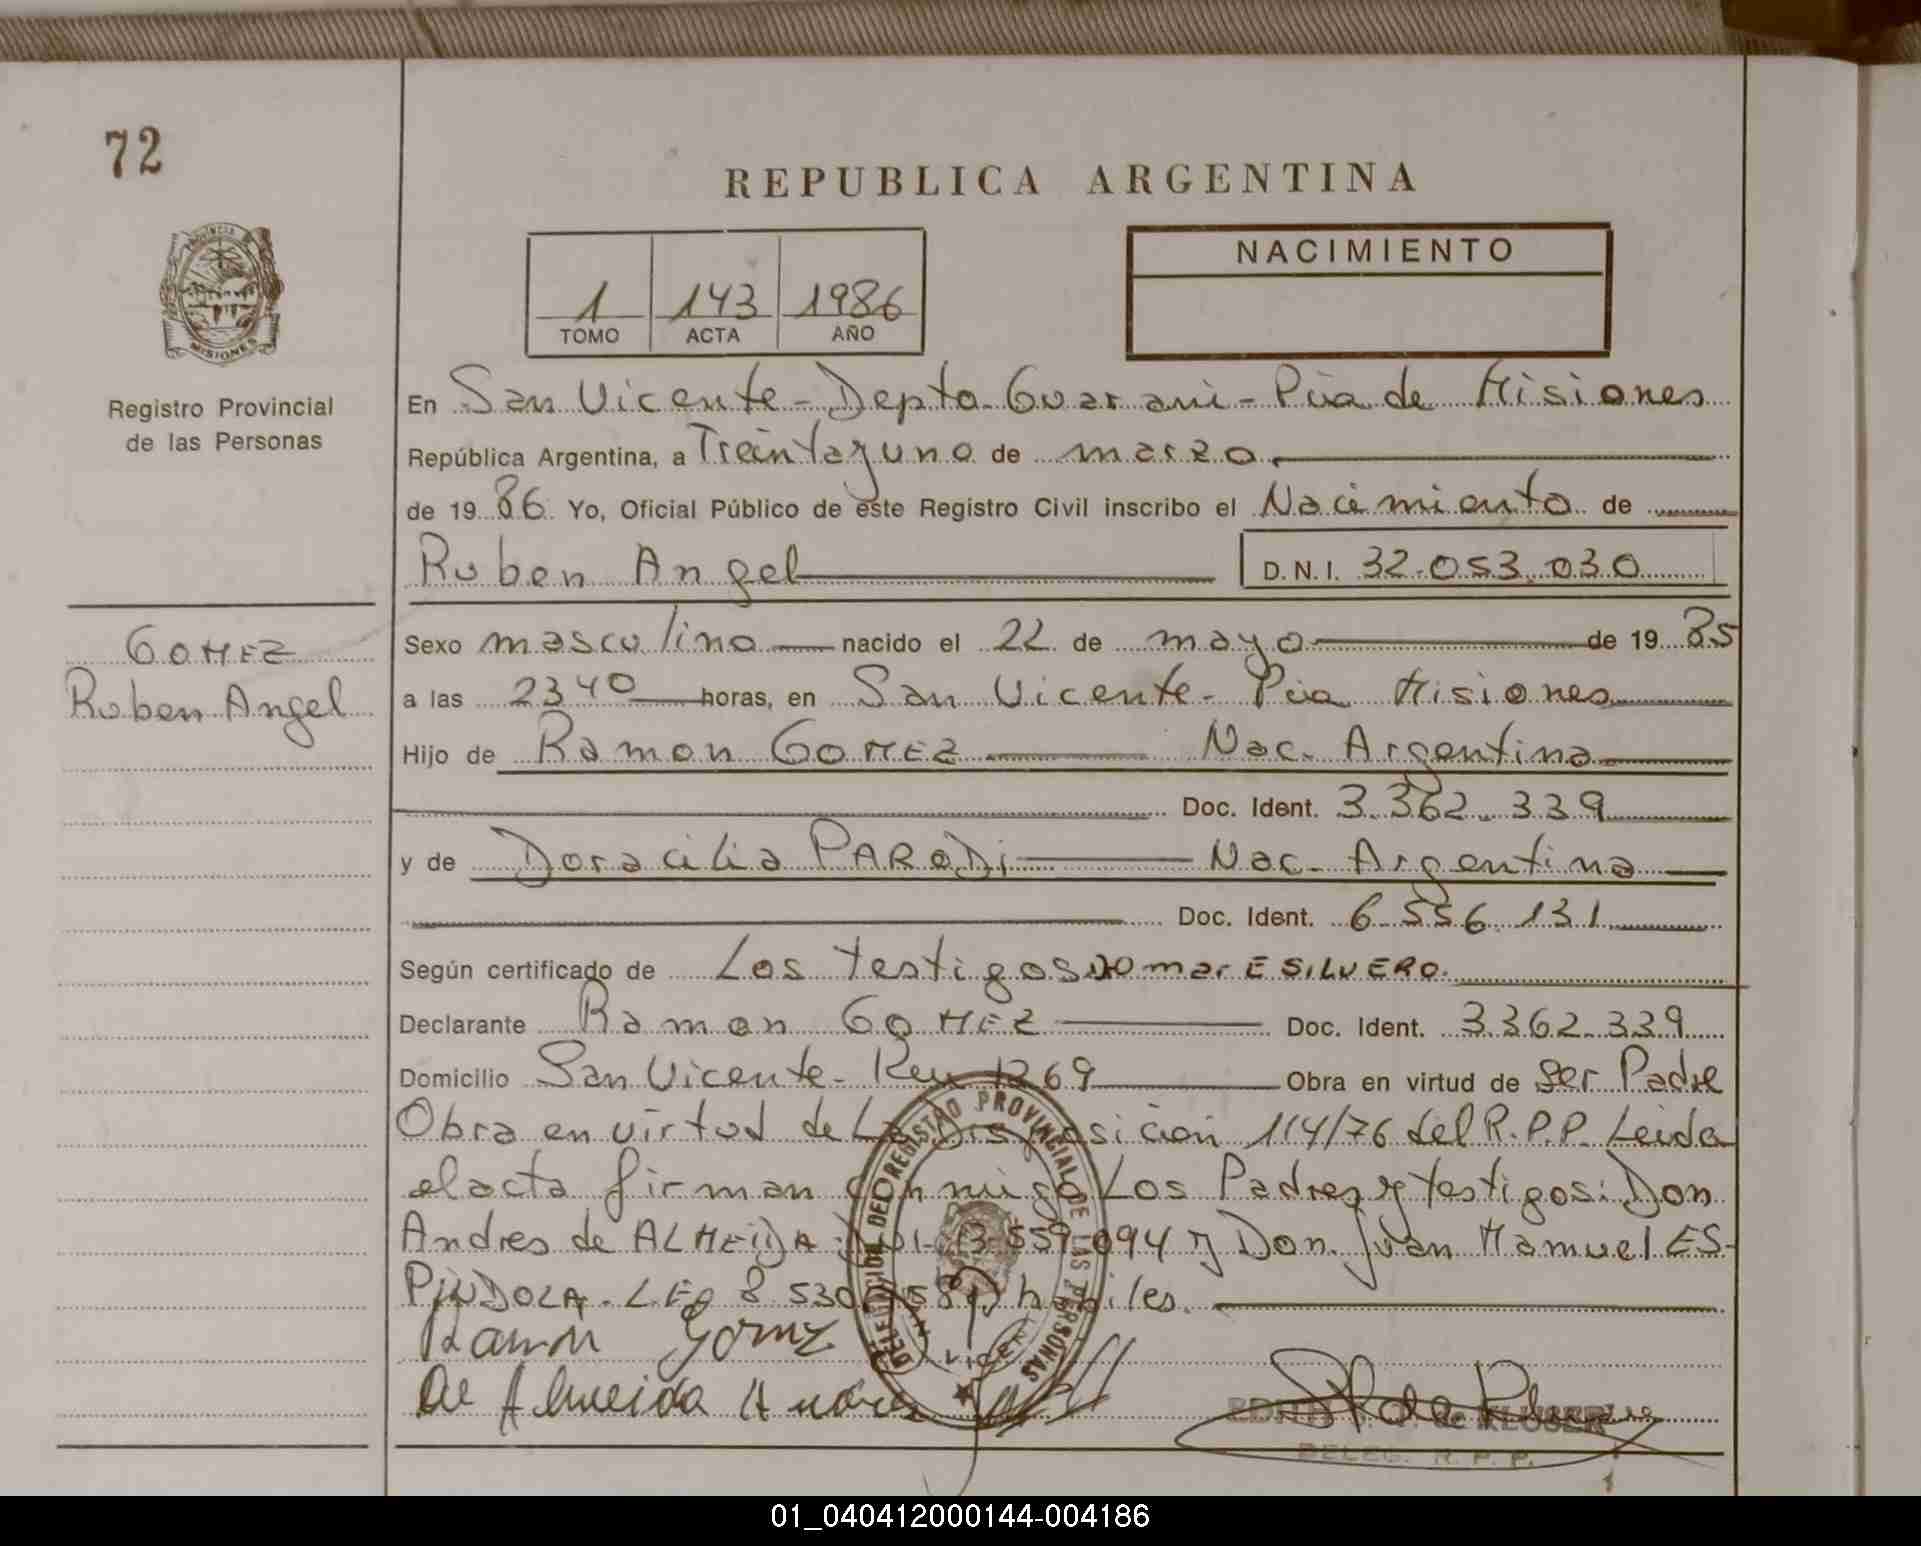 72
REPUBLICA ARGENTINA
NACIMIENTO
1 143 1986
TOMO ACTA AÑO
PROVINCIA DE
MISIONES
Registro Provincial
de las Personas
En San Vicente - Depto Guarani - Pcia de Misiones
República Argentina, a Treintayuno de marzo
de 1986 Yo, Oficial Público de este Registro Civil inscribo el Nacimiento de
Ruben Angel D.N.I. 32.053.030
GOMEZ
Ruben Angel
Sexo masculino nacido el 22 de mayo de 1985
a las 2340 horas, en San Vicente - Pcia Misiones
Hijo de Ramon GOMEZ Nac. Argentina
Doc. Ident. 3.362.339
y de Doracilia PARODi Nac. Argentina
Doc. Ident. 6.556.131
Según certificado de Los testigos Omar E SILVERO.
Declarante Ramon GOMEZ Doc. Ident. 3.362.339
Domicilio San Vicente - 1269 Obra en virtud de ser Padre
Obra en virtud de La Disposicion 114/76 del R.P.P. Leida
el acta firman conmigo Los Padres y testigos: Don
Andres de ALMEiDA 13.559.094 y Don Juan Manuel ES-
PiNDOLA. 8.530 habiles.
Ramon Gomez
De Almeida Andres
DELEGACION DEL REGISTRO PROVINCIAL DE LAS PERSONAS
EDITH de KLUSER
DELEG. R. P. P.
01_040412000144-004186